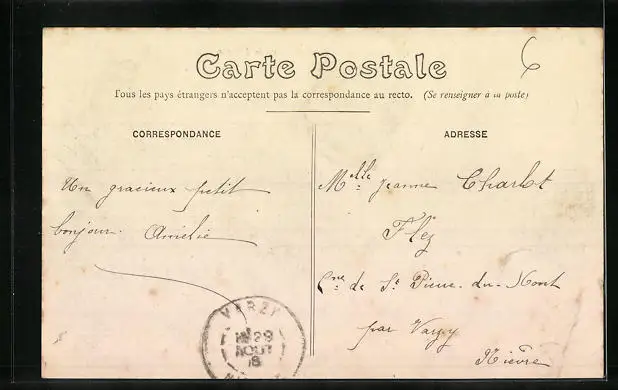 Carte Postale
Tous les pays étrangers n'acceptent pas la correspondance au recto. (Se renseigner à la poste)
CORRESPONDANCE
Un gracieux petit
bonjour. Amélie
ADRESSE
Melle Jeanne Charlot
Flez
Cne de St Pierre-du-Mont
par Varzy
Nièvre
VARZY
29
AOUT
18